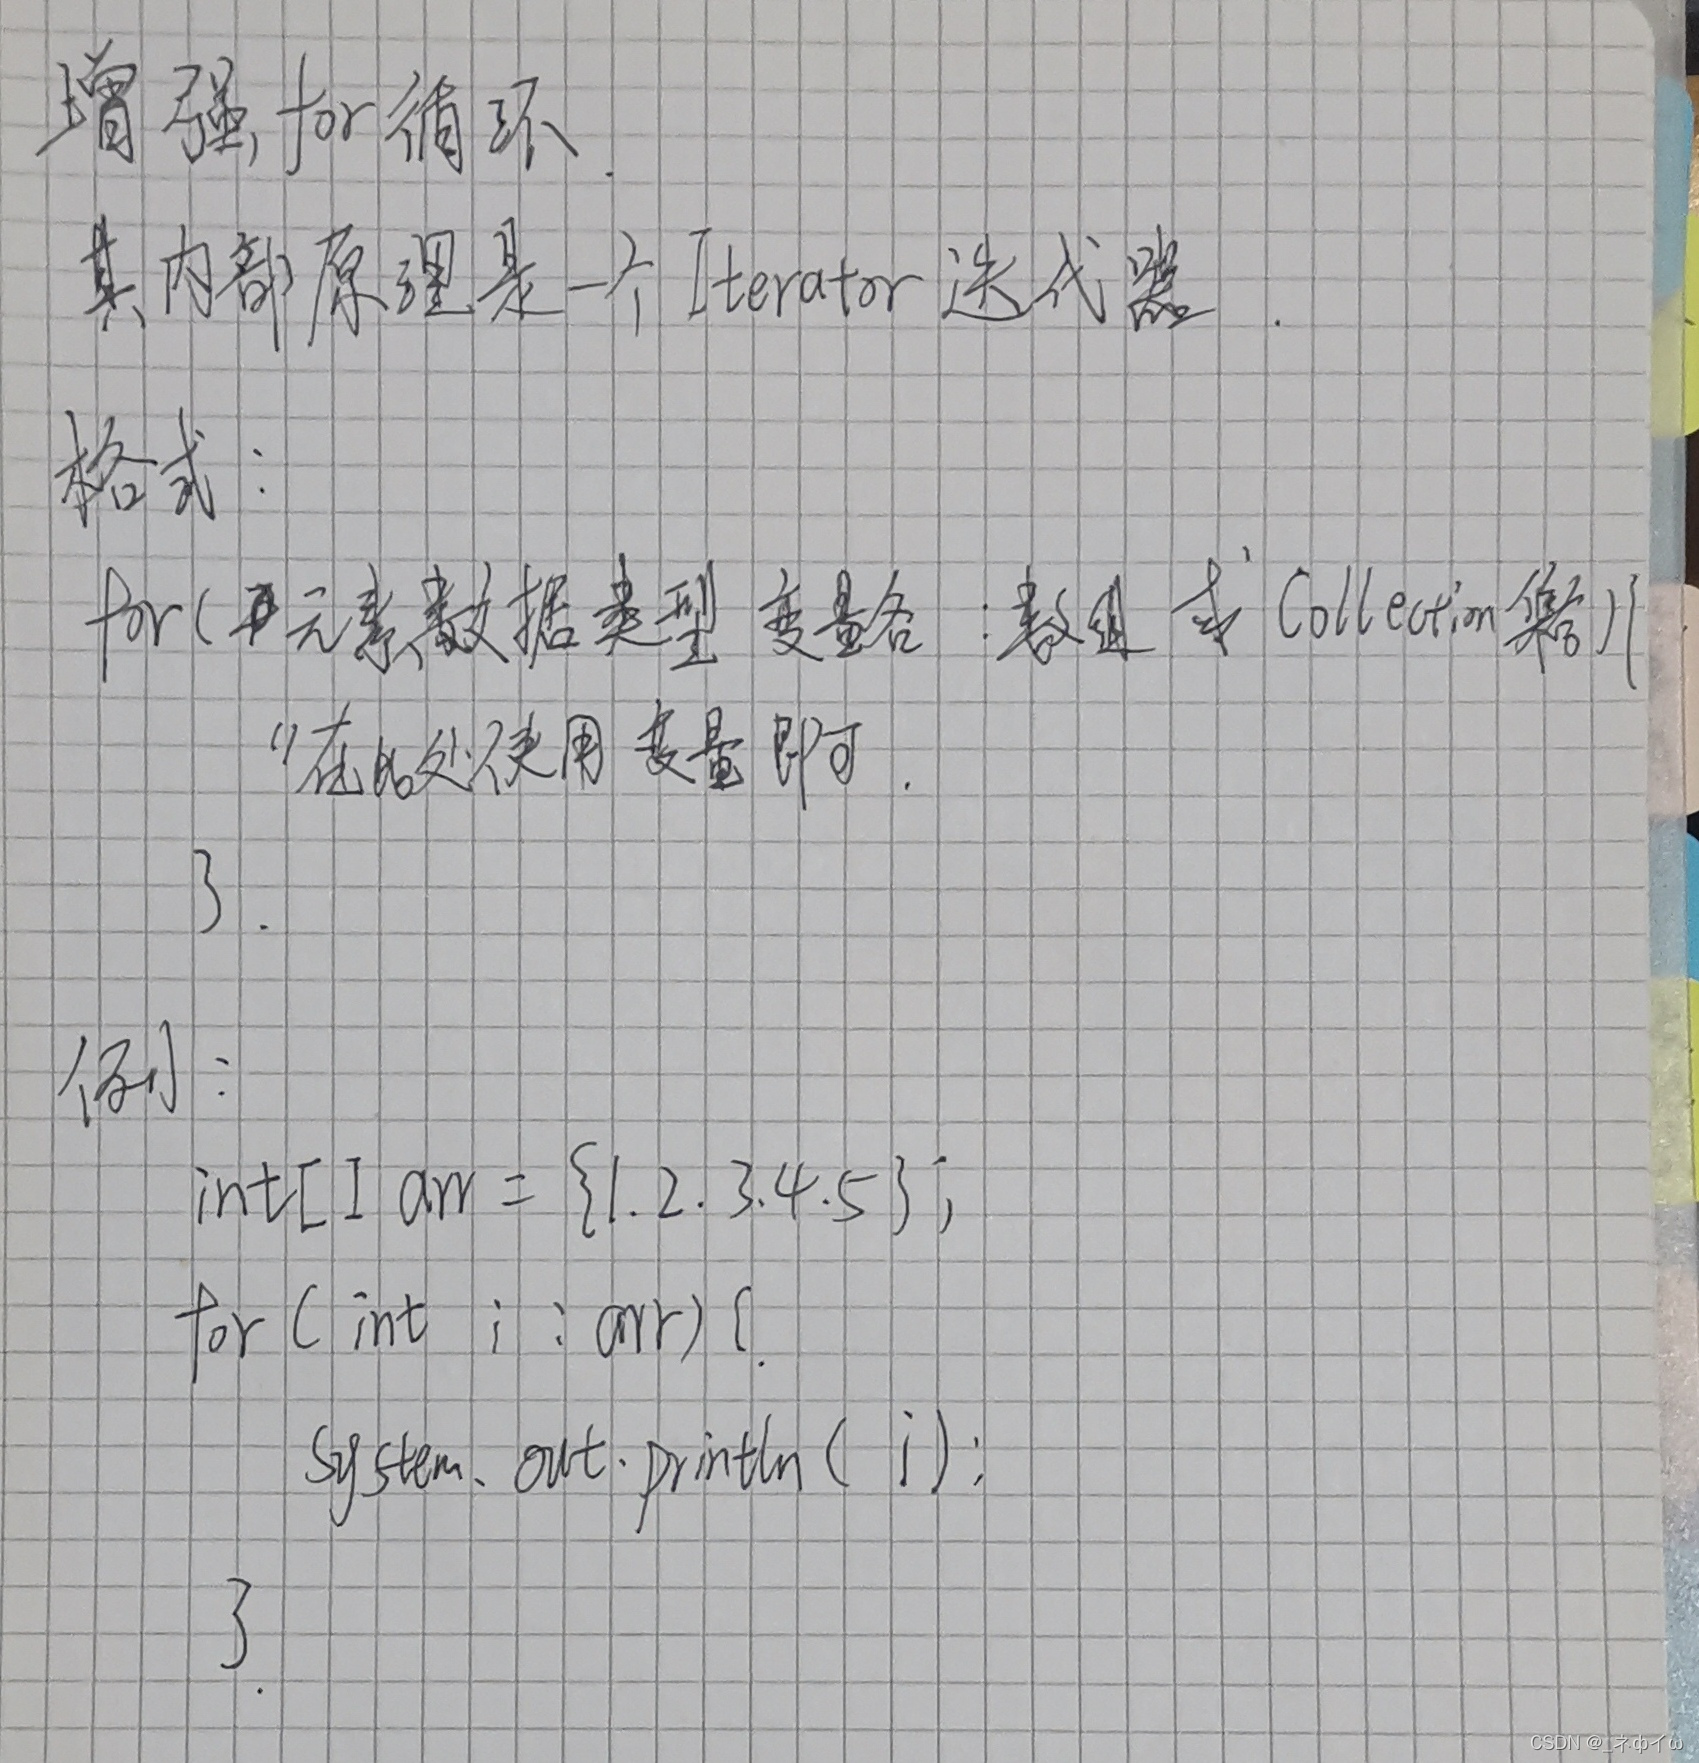 增强for循环.
其内部原理是一个Iterator迭代器.
格式:
for(元素数据类型 变量名 : 数组 或 Collection集合){
//在此处使用变量即可.
}.
例:
int[] arr = {1.2.3.4.5};
for( int i : arr){.
System.out.println( i);
}.
CSDN @_ネ中イω